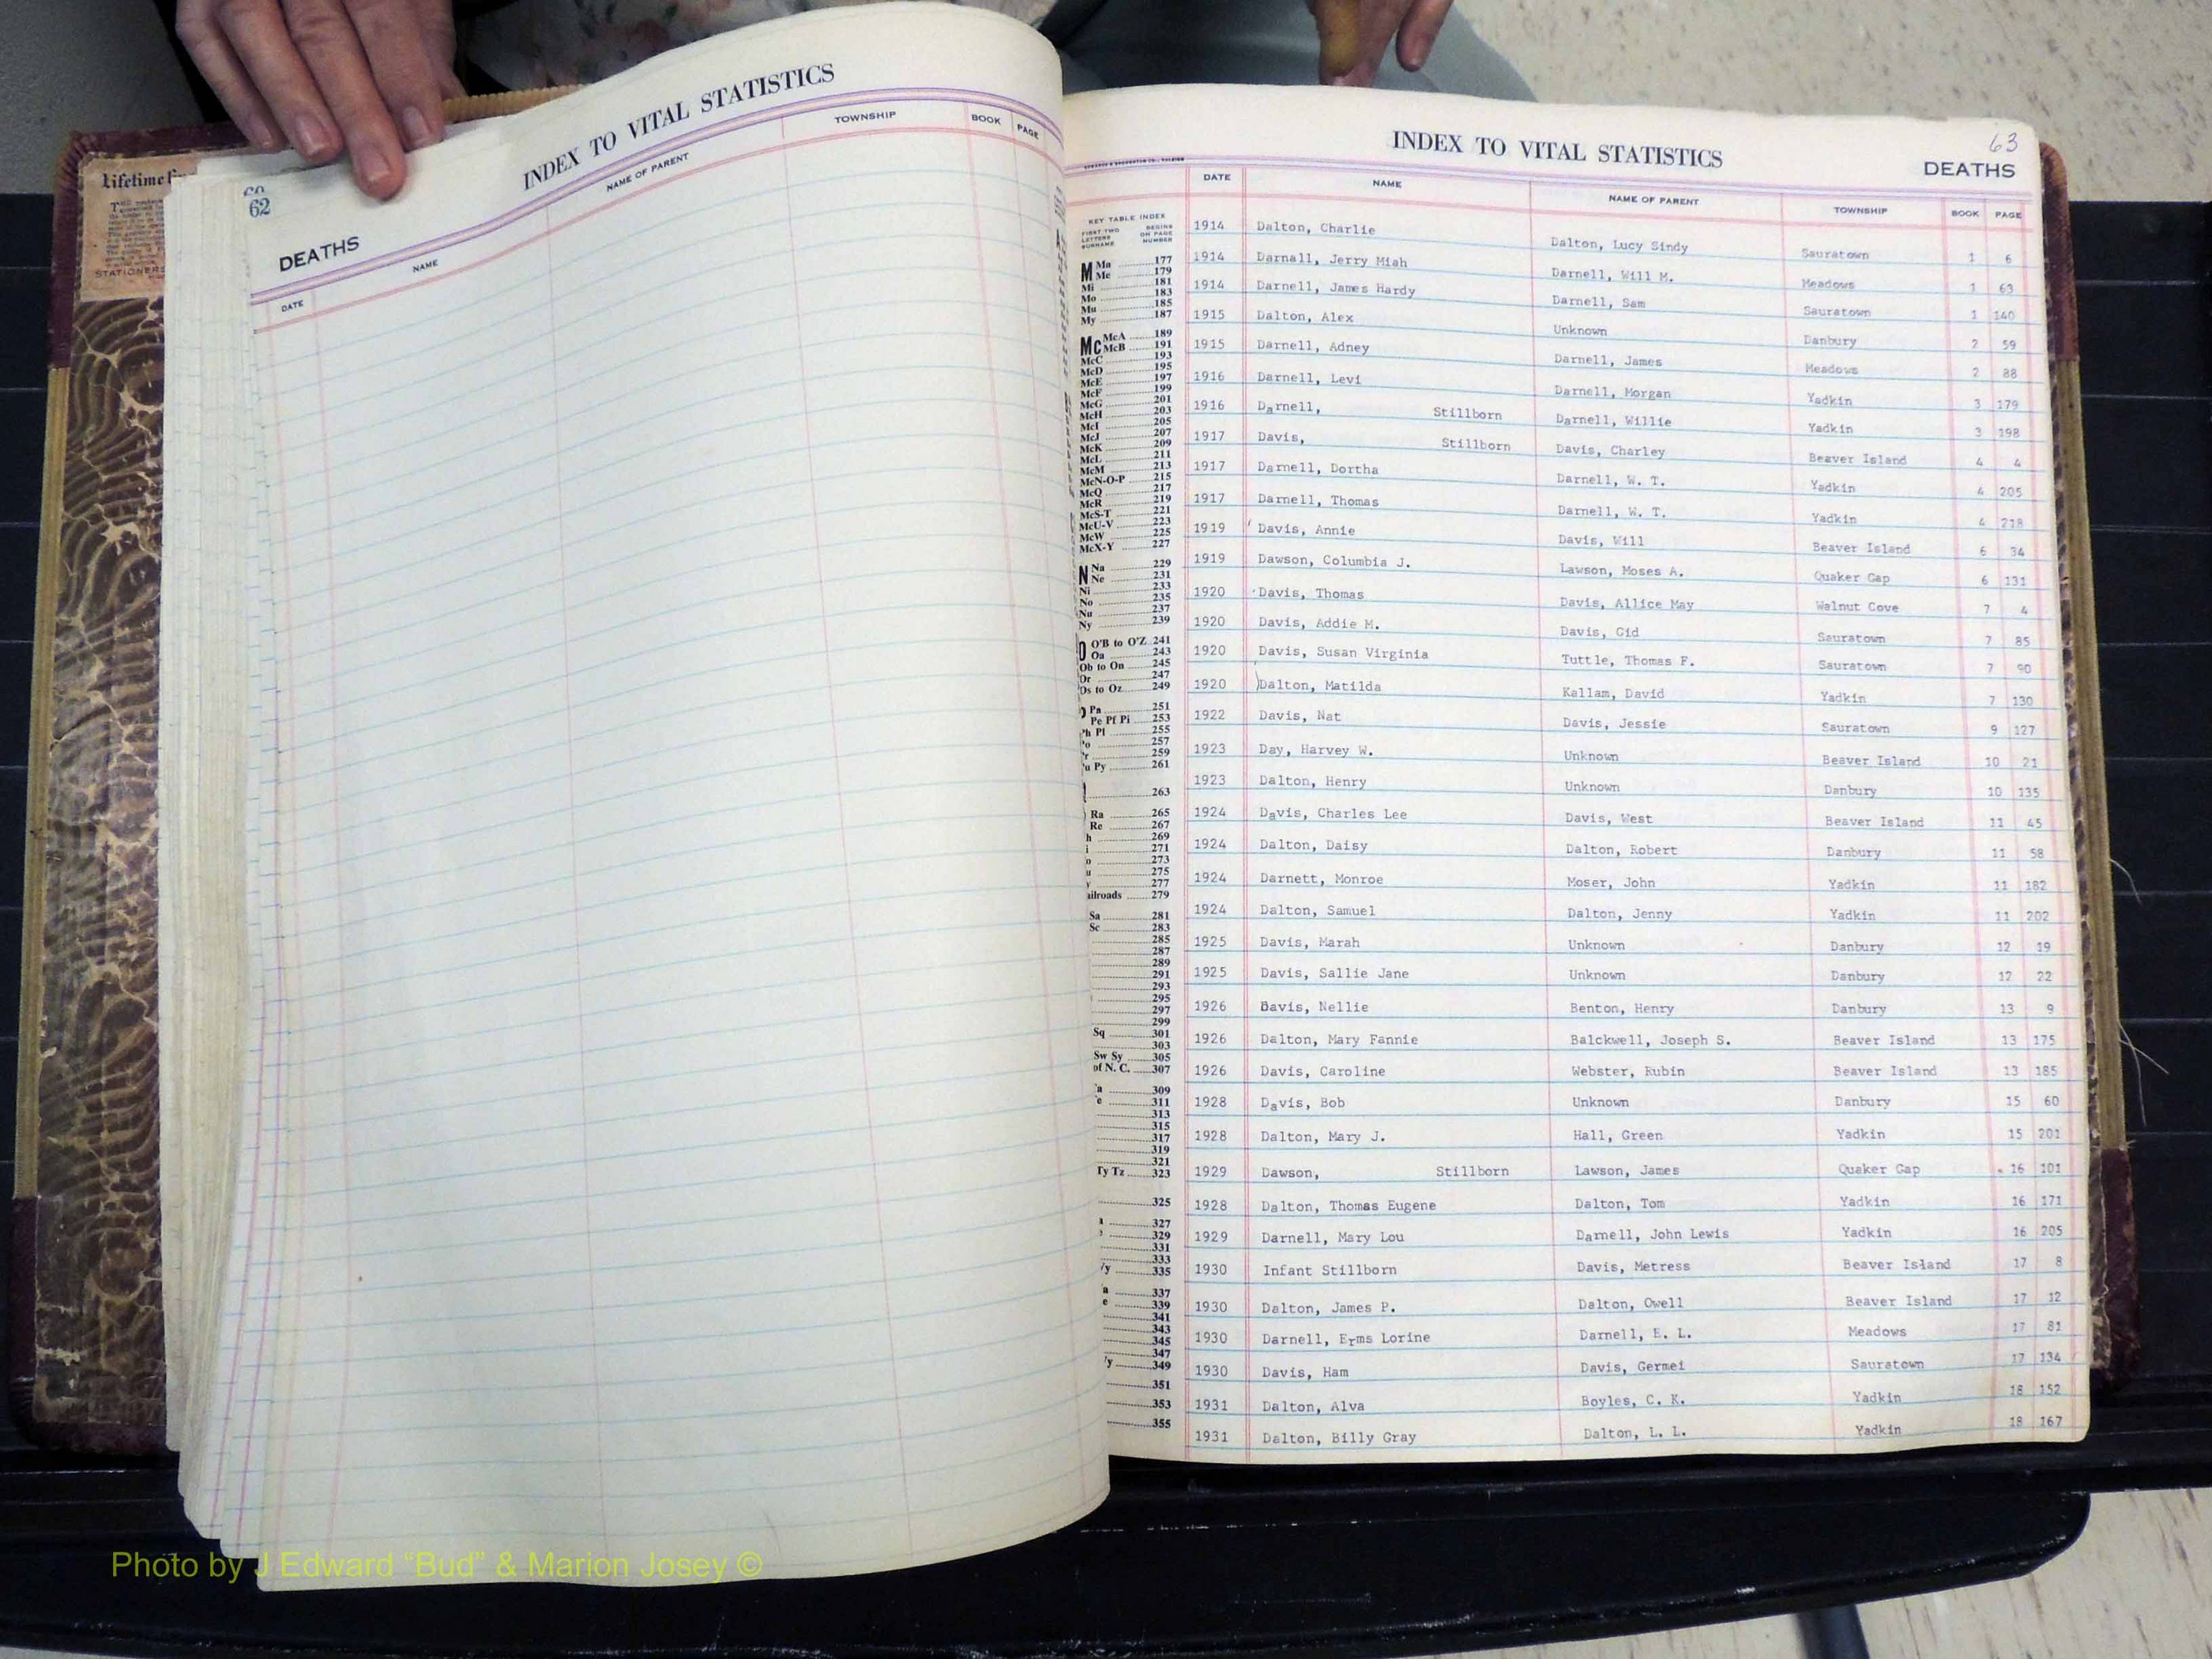 Lifetime
STATIONERS
62
INDEX TO VITAL STATISTICS
DEATHS
DATE NAME NAME OF PARENT TOWNSHIP BOOK PAGE
63
INDEX TO VITAL STATISTICS
DEATHS
DATE NAME NAME OF PARENT TOWNSHIP BOOK PAGE
1914 Dalton, Charlie Dalton, Lucy Sindy Sauratown 1 6
1914 Darnall, Jerry Miah Darnell, Will M. Meadows 1 63
1914 Darnell, James Hardy Darnell, Sam Sauratown 1 140
1915 Dalton, Alex Unknown Danbury 2 59
1915 Darnell, Adney Darnell, James Meadows 2 88
1916 Darnell, Levi Darnell, Morgan Yadkin 3 179
1916 Darnell, Stillborn Darnell, Willie Yadkin 3 198
1917 Davis, Stillborn Davis, Charley Beaver Island 4 4
1917 Darnell, Dortha Darnell, W. T. Yadkin 4 205
1917 Darnell, Thomas Darnell, W. T. Yadkin 4 218
1919 Davis, Annie Davis, Will Beaver Island 6 34
1919 Dawson, Columbia J. Lawson, Moses A. Quaker Gap 6 131
1920 Davis, Thomas Davis, Allice May Walnut Cove 7 4
1920 Davis, Addie M. Davis, Gid Sauratown 7 85
1920 Davis, Susan Virginia Tuttle, Thomas F. Sauratown 7 90
1920 Dalton, Matilda Kallam, David Yadkin 7 130
1922 Davis, Nat Davis, Jessie Sauratown 9 127
1923 Day, Harvey W. Unknown Beaver Island 10 21
1923 Dalton, Henry Unknown Danbury 10 135
1924 Davis, Charles Lee Davis, West Beaver Island 11 45
1924 Dalton, Daisy Dalton, Robert Danbury 11 58
1924 Darnett, Monroe Moser, John Yadkin 11 182
1924 Dalton, Samuel Dalton, Jenny Yadkin 11 202
1925 Davis, Marah Unknown Danbury 12 19
1925 Davis, Sallie Jane Unknown Danbury 12 22
1926 Davis, Nellie Benton, Henry Danbury 13 9
1926 Dalton, Mary Fannie Balckwell, Joseph S. Beaver Island 13 175
1926 Davis, Caroline Webster, Rubin Beaver Island 13 185
1928 Davis, Bob Unknown Danbury 15 60
1928 Dalton, Mary J. Hall, Green Yadkin 15 201
1929 Dawson, Stillborn Lawson, James Quaker Gap 16 101
1928 Dalton, Thomas Eugene Dalton, Tom Yadkin 16 171
1929 Darnell, Mary Lou Darnell, John Lewis Yadkin 16 205
1930 Infant Stillborn Davis, Metress Beaver Island 17 8
1930 Dalton, James P. Dalton, Owell Beaver Island 17 12
1930 Darnell, Erms Lorine Darnell, E. L. Meadows 17 81
1930 Davis, Ham Davis, Germei Sauratown 17 134
1931 Dalton, Alva Boyles, C. K. Yadkin 18 152
1931 Dalton, Billy Gray Dalton, L. L. Yadkin 18 167
KEY TABLE INDEX
FIRST TWO LETTERS SURNAME BEGINS ON PAGE NUMBER
M Ma 177
Me 179
Mi 181
Mo 183
Mu 185
My 187
Mc McA 189
McB 191
McC 193
McD 195
McE 197
McF 199
McG 201
McH 203
McI 205
McJ 207
McK 209
McL 211
McM 213
McN-O-P 215
McQ 217
McR 219
McS-T 221
McU-V 223
McW 225
McX-Y 227
N Na 229
Ne 231
Ni 233
No 235
Nu 237
Ny 239
O'B to O'Z 241
Oa 243
Ob to On 245
Or 247
Os to Oz 249
Pa 251
Pe Pf Pi 253
Ph Pl 255
257
259
u Py 261
263
Ra 265
Re 267
269
271
273
275
277
ailroads 279
Sa 281
Sc 283
285
287
289
291
293
295
297
299
Sq 301
303
Sw Sy 305
of N. C. 307
309
311
313
315
317
319
321
Ty Tz 323
325
327
329
331
333
335
337
339
341
343
345
347
349
351
353
355
Photo by J Edward “Bud” & Marion Josey ©